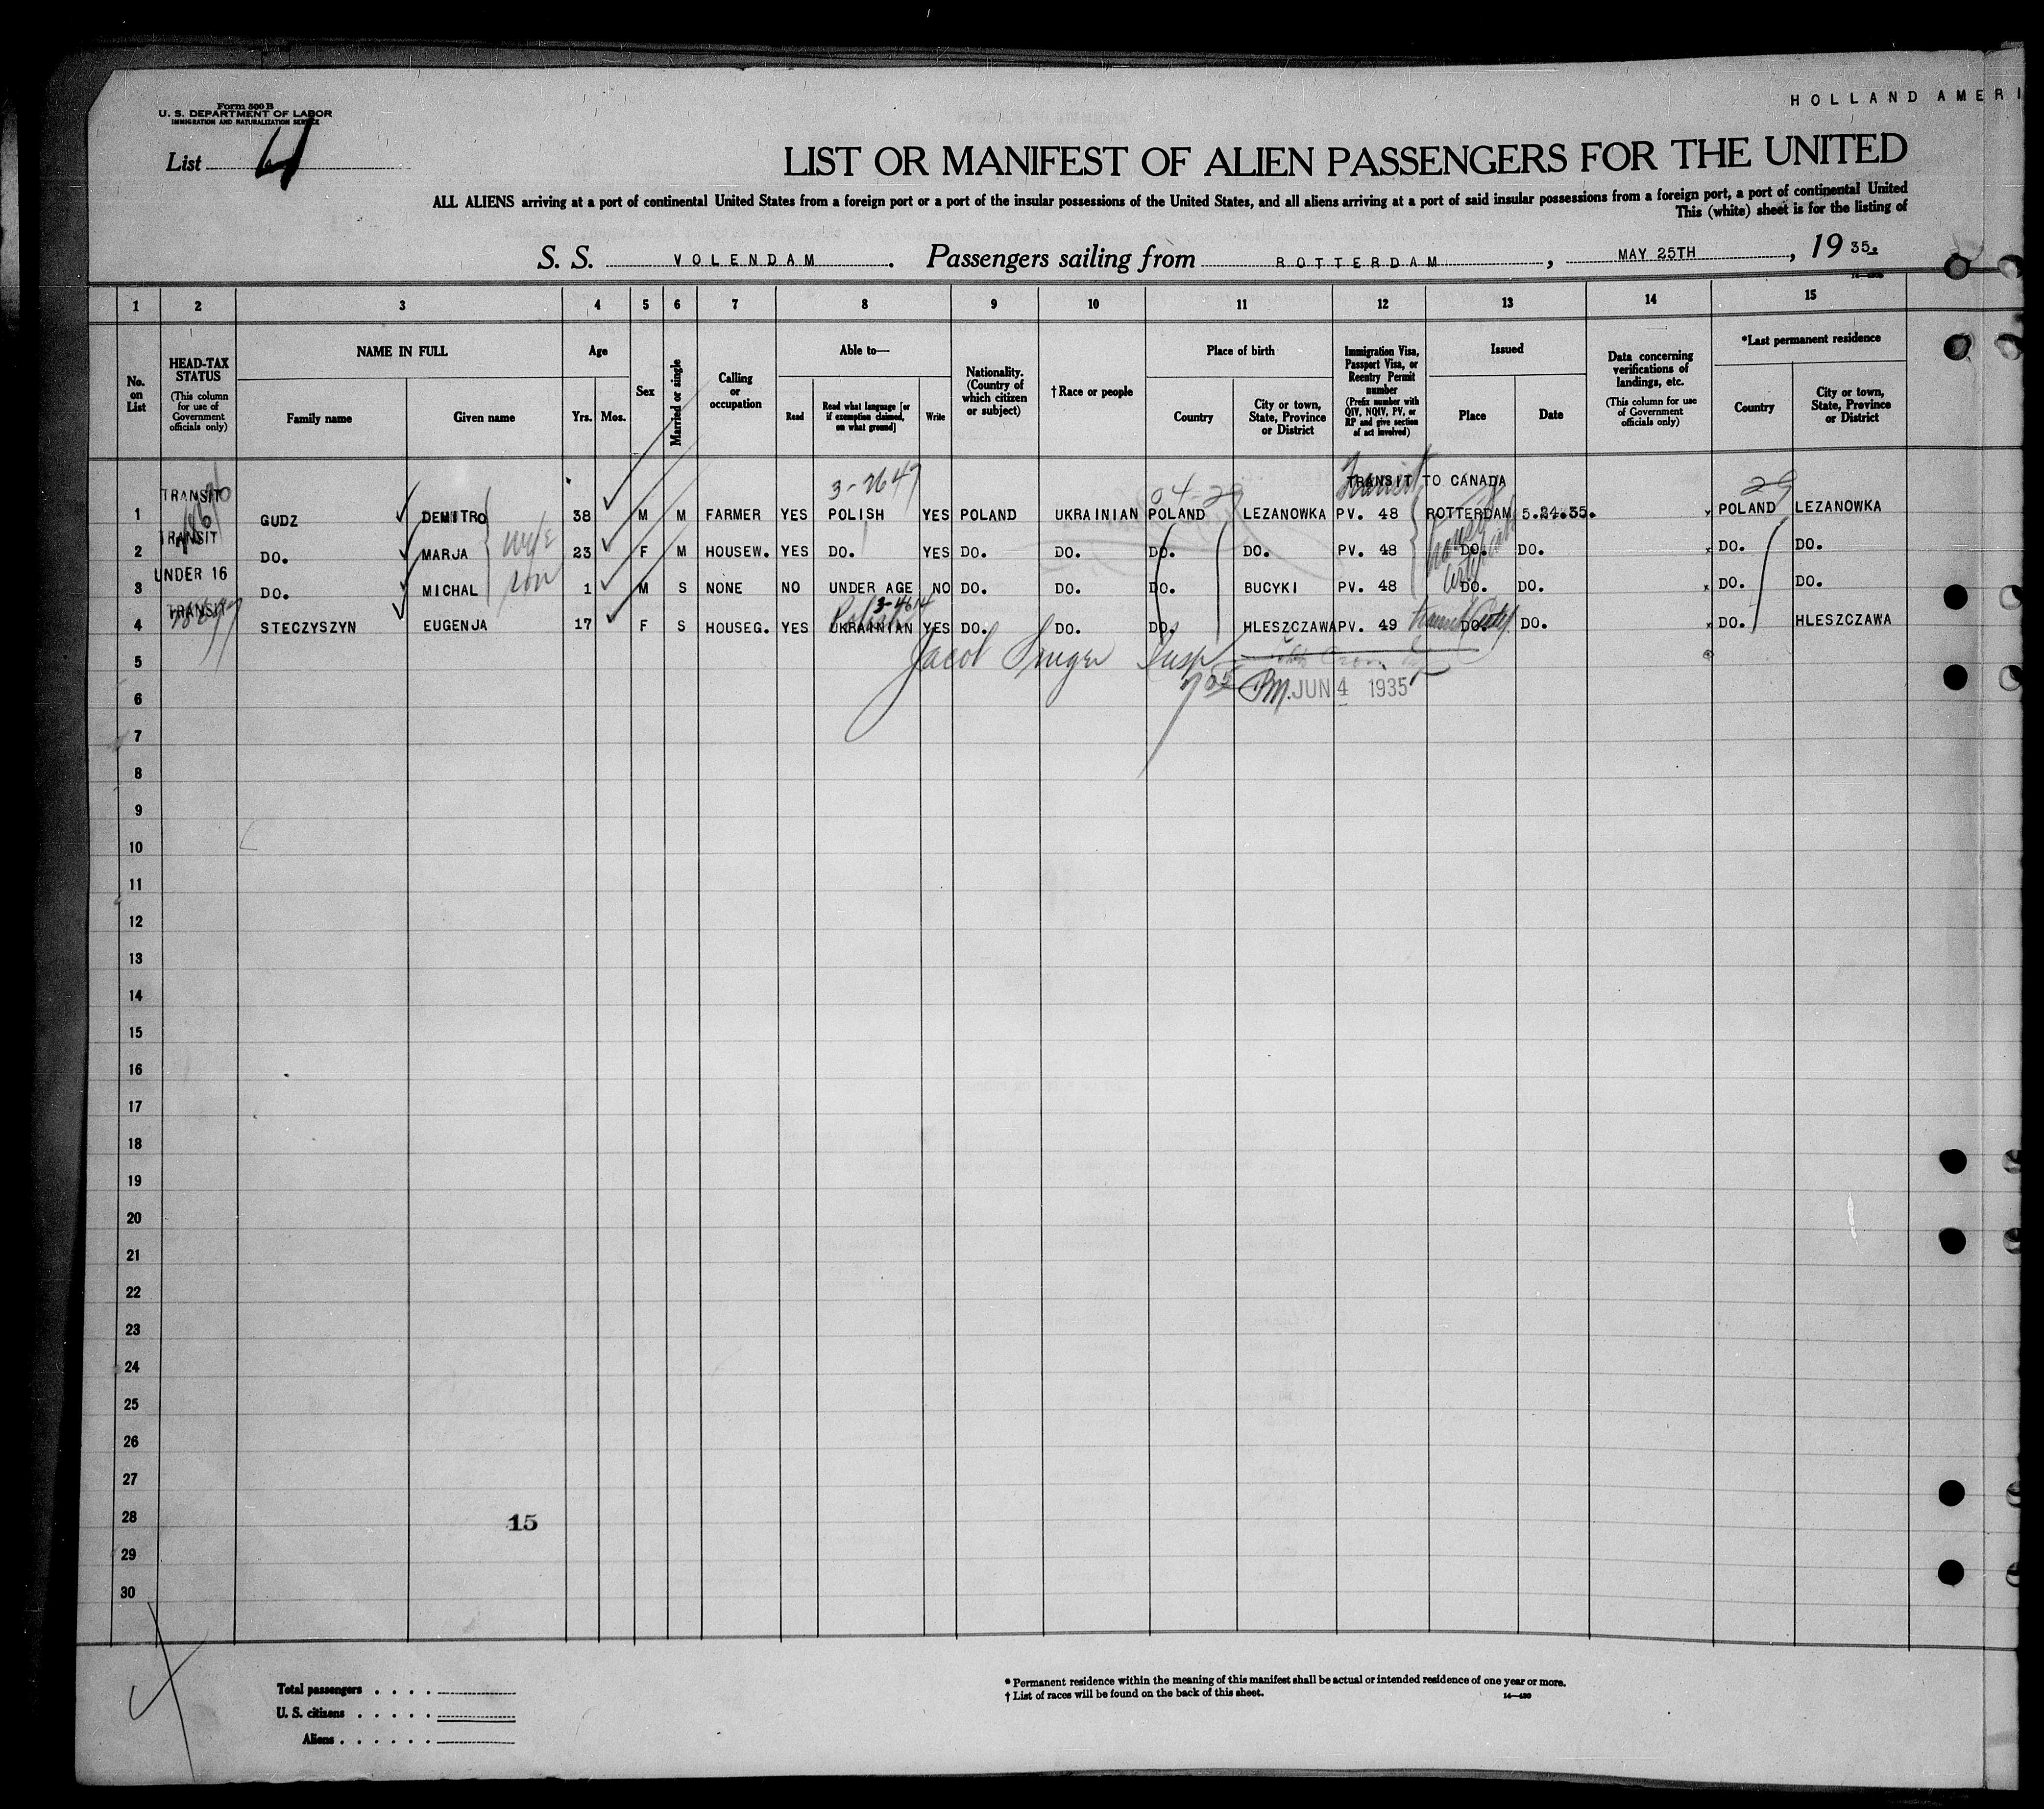 HOLLAND AMERI
Form 500 B
U. S. DEPARTMENT OF LABOR
IMMIGRATION AND NATURALIZATION SERVICE
List 4
LIST OR MANIFEST OF ALIEN PASSENGERS FOR THE UNITED
ALL ALIENS arriving at a port of continental United States from a foreign port or a port of the insular possessions of the United States, and all aliens arriving at a port of said insular possessions from a foreign port, a port of continental United
This (white) sheet is for the listing of
S. S. VOLENDAM. Passengers sailing from ROTTERDAM, MAY 25TH, 19 35.
1 2 3 4 5 6 7 8 9 10 11 12 13 14 15
No. on List
HEAD-TAX STATUS
(This column for use of Government officials only)
NAME IN FULL
Family name
Given name
Age
Yrs.
Mos.
Sex
Married or single
Calling or occupation
Able to—
Read
Read what language [or if exemption claimed, on what ground]
Write
Nationality. (Country of which citizen or subject)
† Race or people
Place of birth
Country
City or town, State, Province or District
Immigration Visa, Passport Visa, or Reentry Permit number
(Prefix number with QIV, NQIV, PV, or RP and give section of act involved)
Issued
Place
Date
Data concerning verifications of landings, etc.
(This column for use of Government officials only)
*Last permanent residence
Country
City or town, State, Province or District
3-2647 04-29 Transit 29
TRANSIT TO CANADA
1 TRANSIT GUDZ DEMITRO 38 M M FARMER YES POLISH YES POLAND UKRAINIAN POLAND LEZANOWKA PV. 48 ROTTERDAM 5.24.35. x POLAND LEZANOWKA
2 TRANSIT DO. MARJA wife 23 F M HOUSEW. YES DO. YES DO. DO. DO. DO. PV. 48 DO. DO. x DO. DO.
3 UNDER 16 DO. MICHAL son 1 M S NONE NO UNDER AGE NO DO. DO. DO. BUCYKI PV. 48 DO. DO. x DO. DO.
Polish 3-4614
4 TRANSIT STECZYSZYN EUGENJA 17 F S HOUSEG. YES UKRAINIAN YES DO. DO. DO. HLESZCZAWA PV. 49 DO. DO. x DO. HLESZCZAWA
5 Jacob Insp
6 PM. JUN 4 1935
7
8
9
10
11
12
13
14
15
16
17
18
19
20
21
22
23
24
25
26
27
28 15
29
30
Total passengers . . . .
U. S. citizens . . . . .
Aliens . . . . . .
* Permanent residence within the meaning of this manifest shall be actual or intended residence of one year or more.
† List of races will be found on the back of this sheet.
14—430